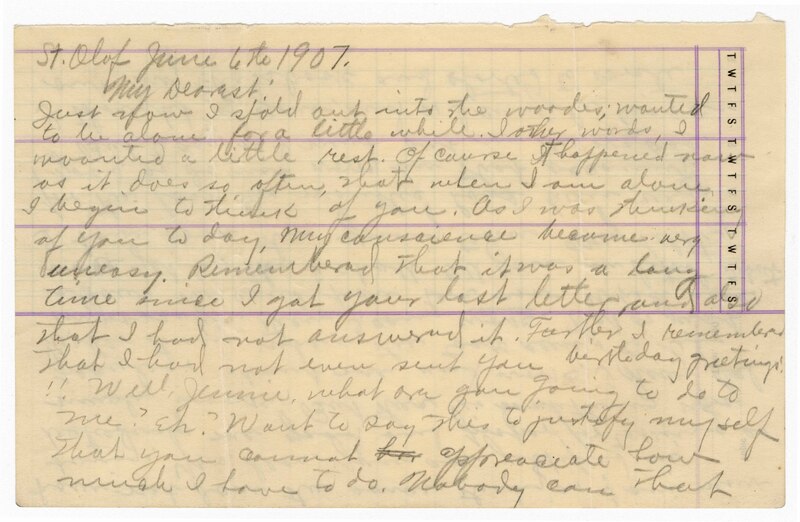 St. Olof June 6th 1907.
My Dearest!
Just now I stold out into the woodes; wanted
to be alone for a little while. I other words, I
wanted a little rest. Of course It happened now
as it does so often, that when I am alone
I begin to think of you. As I was thinking
of you to day, my conscience became very
uneasy. Remembered that it was a long
time since I got your last letter and also
that I had not answered it. Further I remembered
that I had not even sent you birthday greetings!
!! Well, Jennie, what are you going to do to
me? Eh? Want to say this to justify myself
that you cannot appreaciate how
much I have to do. Nobody can that
T W T F S T W T F S T W T F S